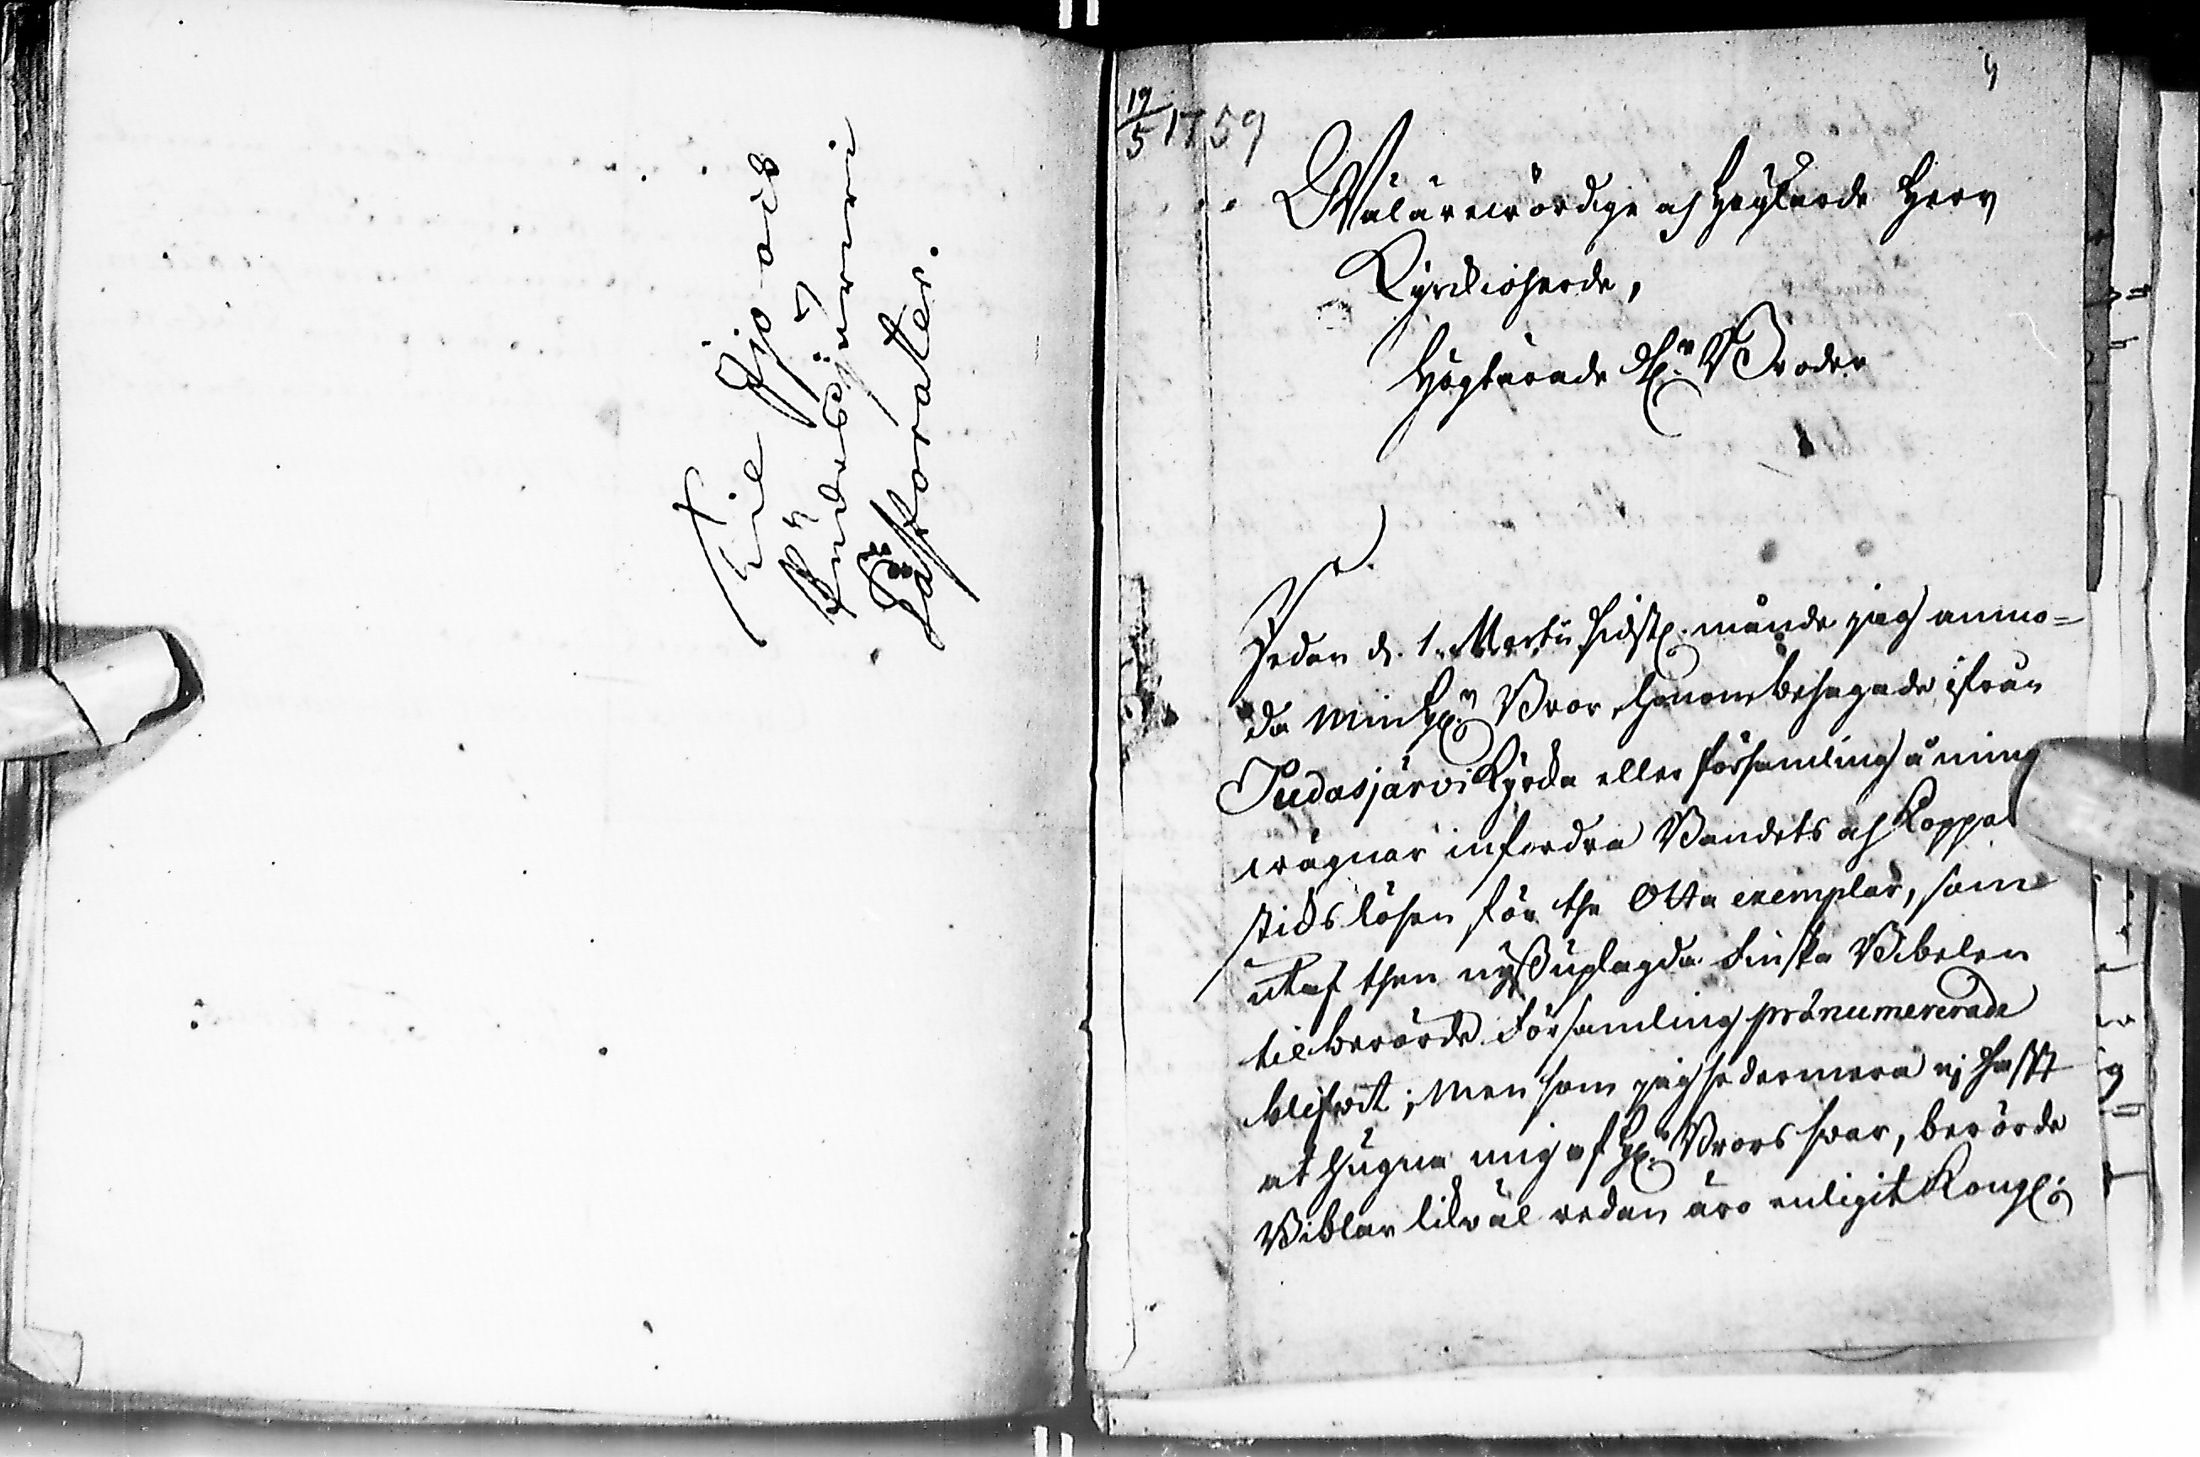 Til Ijo och
Pudasjärvi
Pastorater.
19/5 1759
4
Wälärewördige och Höglärde Herr
Kyrckioherde,
Högtärade H:r Broder
Sedan d. 1. Martii sidstl. månde jag anmo-
da Min H:r Bror, honom behagade ifrån
Pudasjärvi Kyrcka eller församling å mina
wägnar infordra Bandets och Koppar
sticks lösen för the Otta exemplar, som
utaf then nyss uplagda Finska Bibelen
til berörde Församling pränumererade
blifwit; Men som jag sedermera ej hafft
at hugna mig af H:r Brors swar, berörde
Biblar likwäl redan äro enligit Kongl: